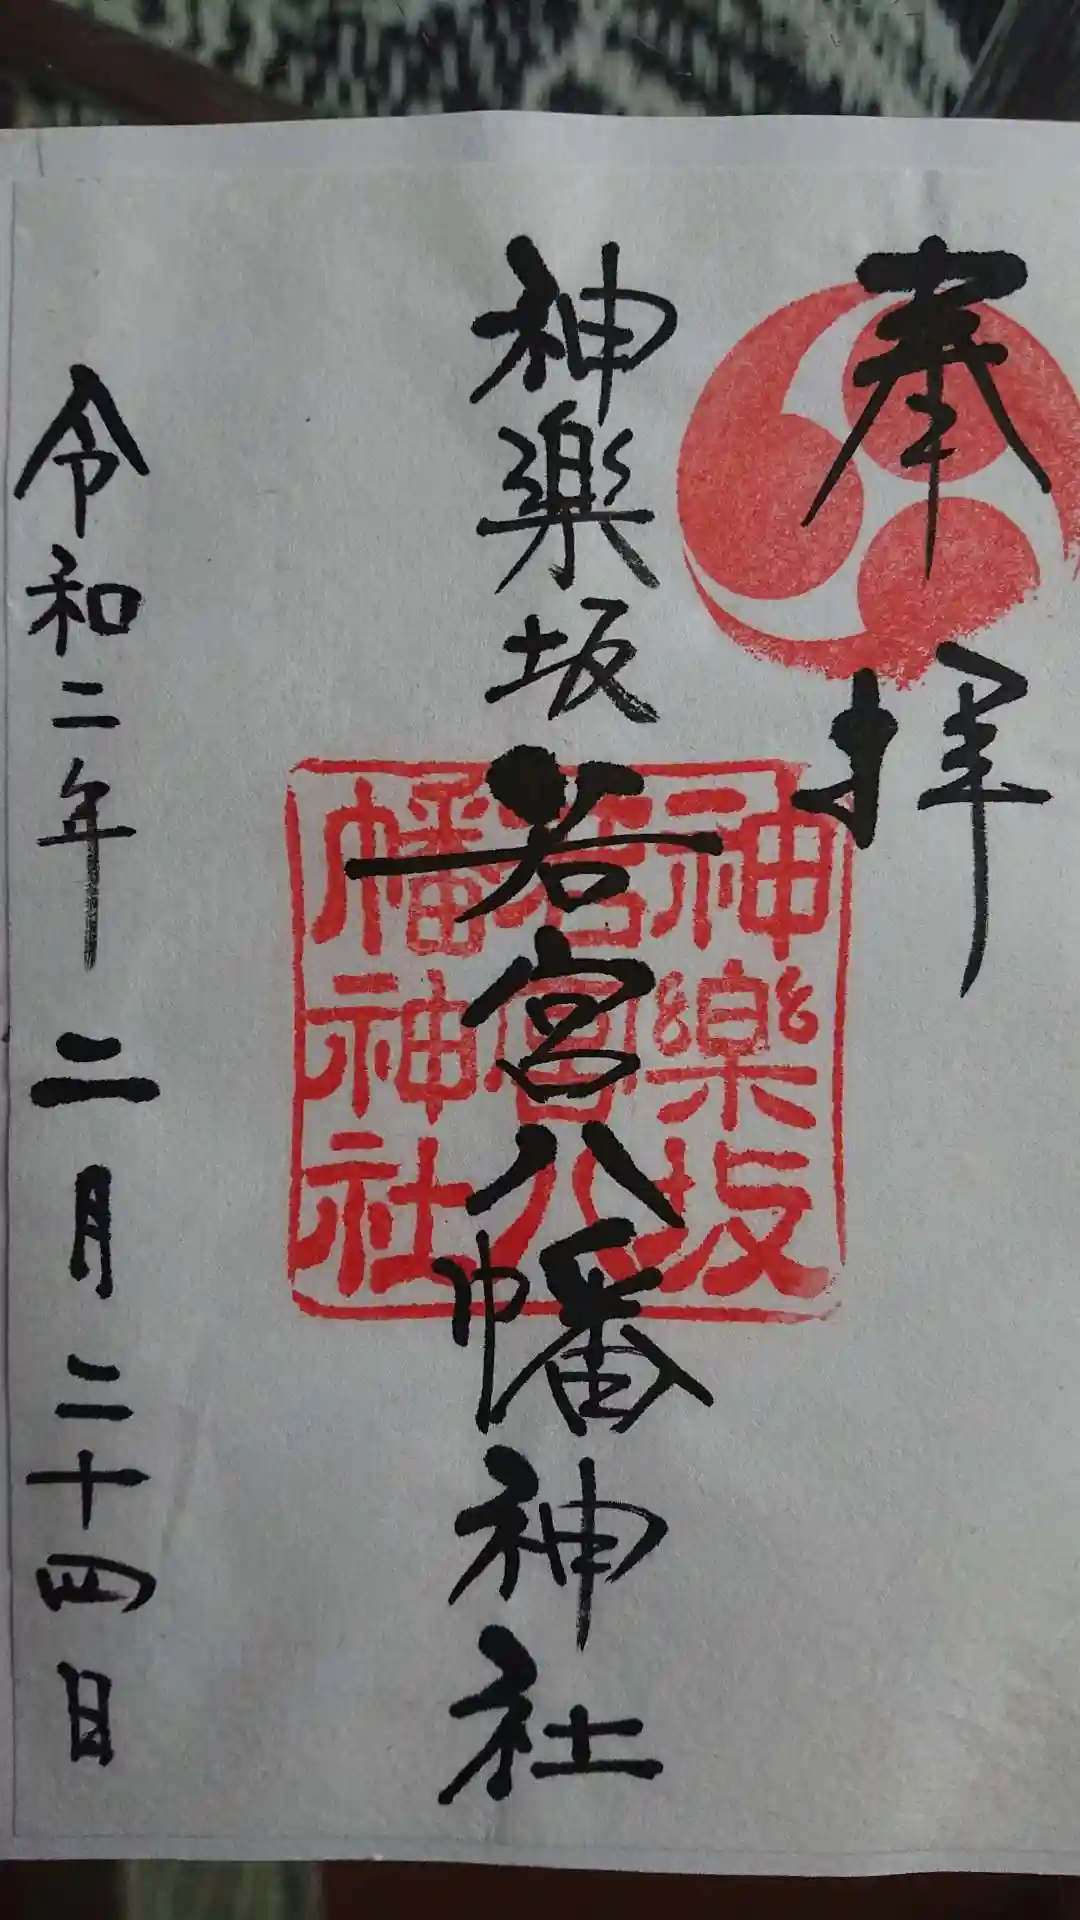 奉拝
神楽坂若宮八幡神社
神樂坂
若宮八
幡神社
令和二年二月二十四日